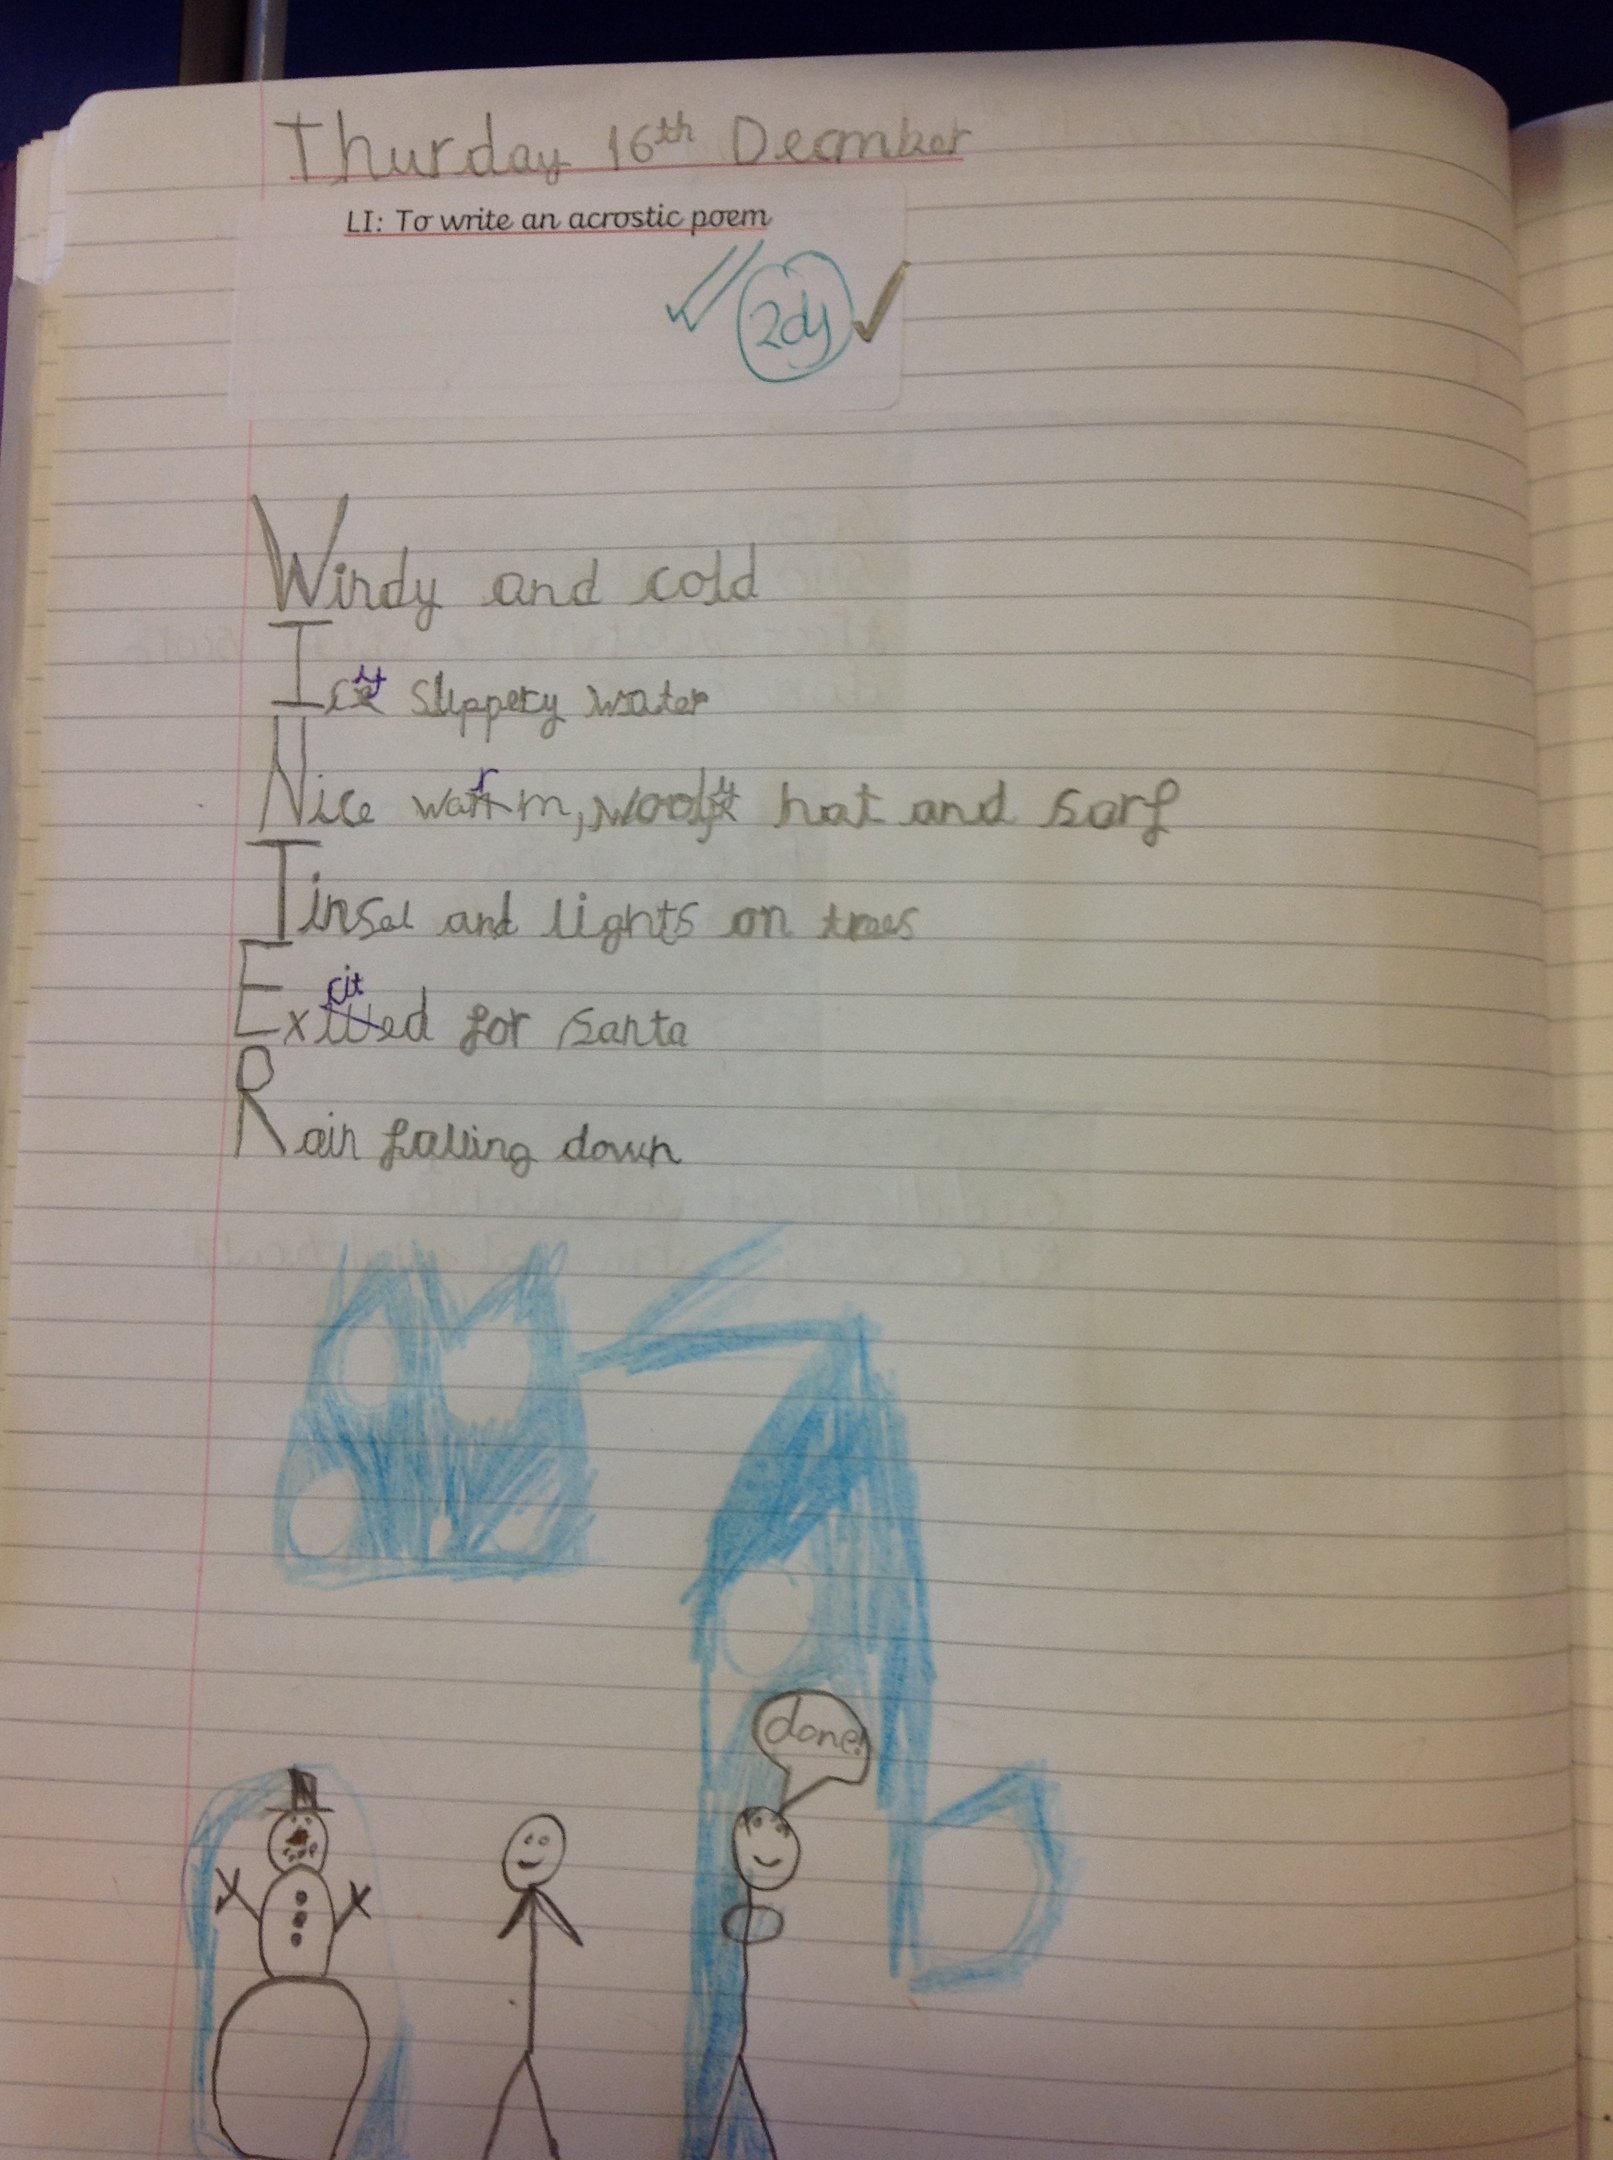 Thurday 16th Decmber
LI: To write an acrostic poem
2dy
Windy and cold
Icy slippery water
Nice warm, wooly hat and sarf
Tinsel and lights on trees
Excited for santa
Rain falling down
done!